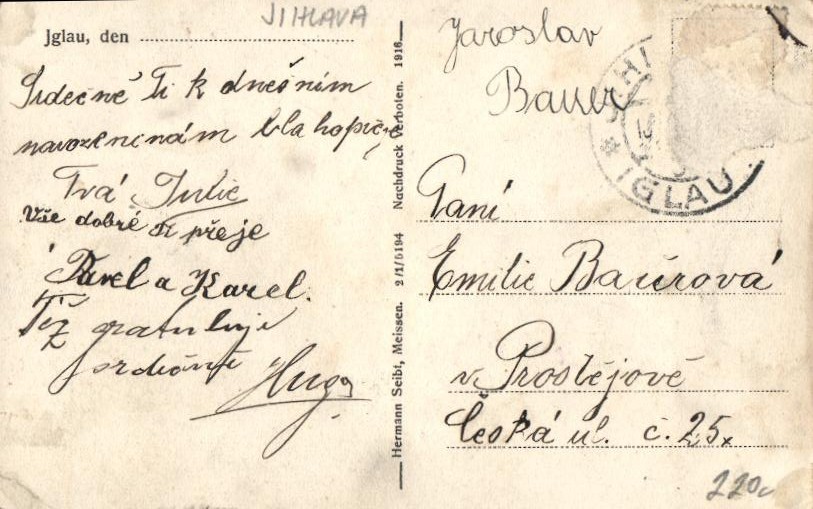 JIHLAVA
Jglau, den
Srdečně Ti k dnešním
narozeninám blahopřeje
Tvá Julie
Vše dobré Ti přeje
Pavel a Karel.
Též gratuluje
srdečně
Hugo
Hermann Seibt, Meissen. 2/1/5194 Nachdruck verboten. 1916
Jaroslav
Bauer
IGLAU
Paní
Emilie Bauerová
v Prostějově
Česká ul. č. 25.
220